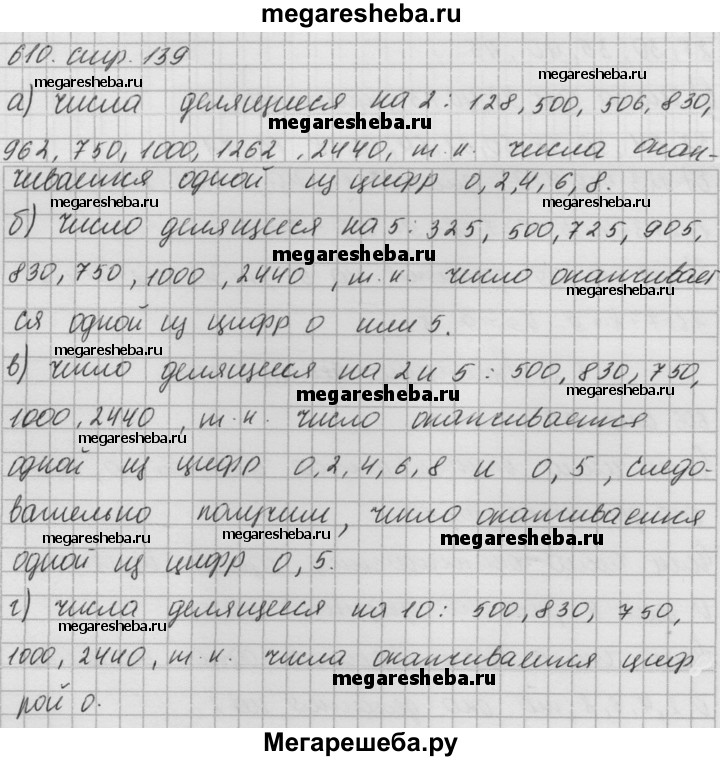 megaresheba.ru
610. стр. 139
megaresheba.ru megaresheba.ru
а) числа делящиеся на 2: 128, 500, 506, 830,
megaresheba.ru
962, 750, 1000, 1262, 2440, т.к. числа окан-
чивается одной из цифр 0, 2, 4, 6, 8.
megaresheba.ru megaresheba.ru
б) число делящееся на 5: 325, 500, 725, 905,
megaresheba.ru
830, 750, 1000, 2440, т.к. число оканчивает
megaresheba.ru megaresheba.ru
ся одной из цифр 0 или 5.
megaresheba.ru
в) число делящееся на 2 и 5: 500, 830, 750,
megaresheba.ru megaresheba.ru
1000, 2440, т.к. число оканчивается
megaresheba.ru
одной из цифр 0, 2, 4, 6, 8 и 0, 5, следо-
вательно получим, число оканчивается
megaresheba.ru megaresheba.ru
одной из цифр 0, 5.
г) числа делящееся на 10: 500, 830, 750,
megaresheba.ru megaresheba.ru
1000, 2440, т.к. числа оканчивается циф
megaresheba.ru
рой 0.
Мегарешеба.ру